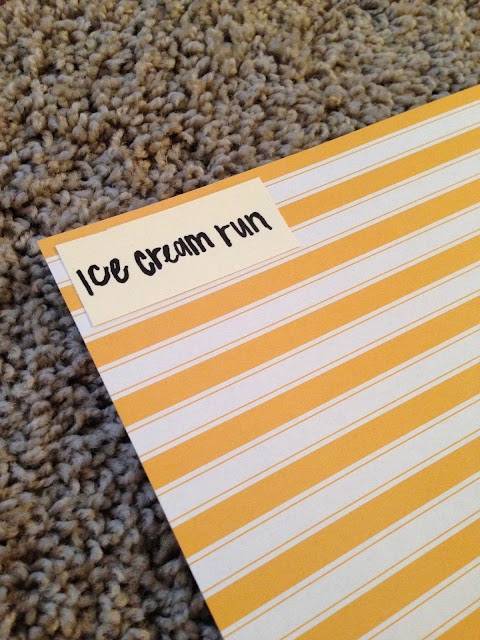 Ice cream run